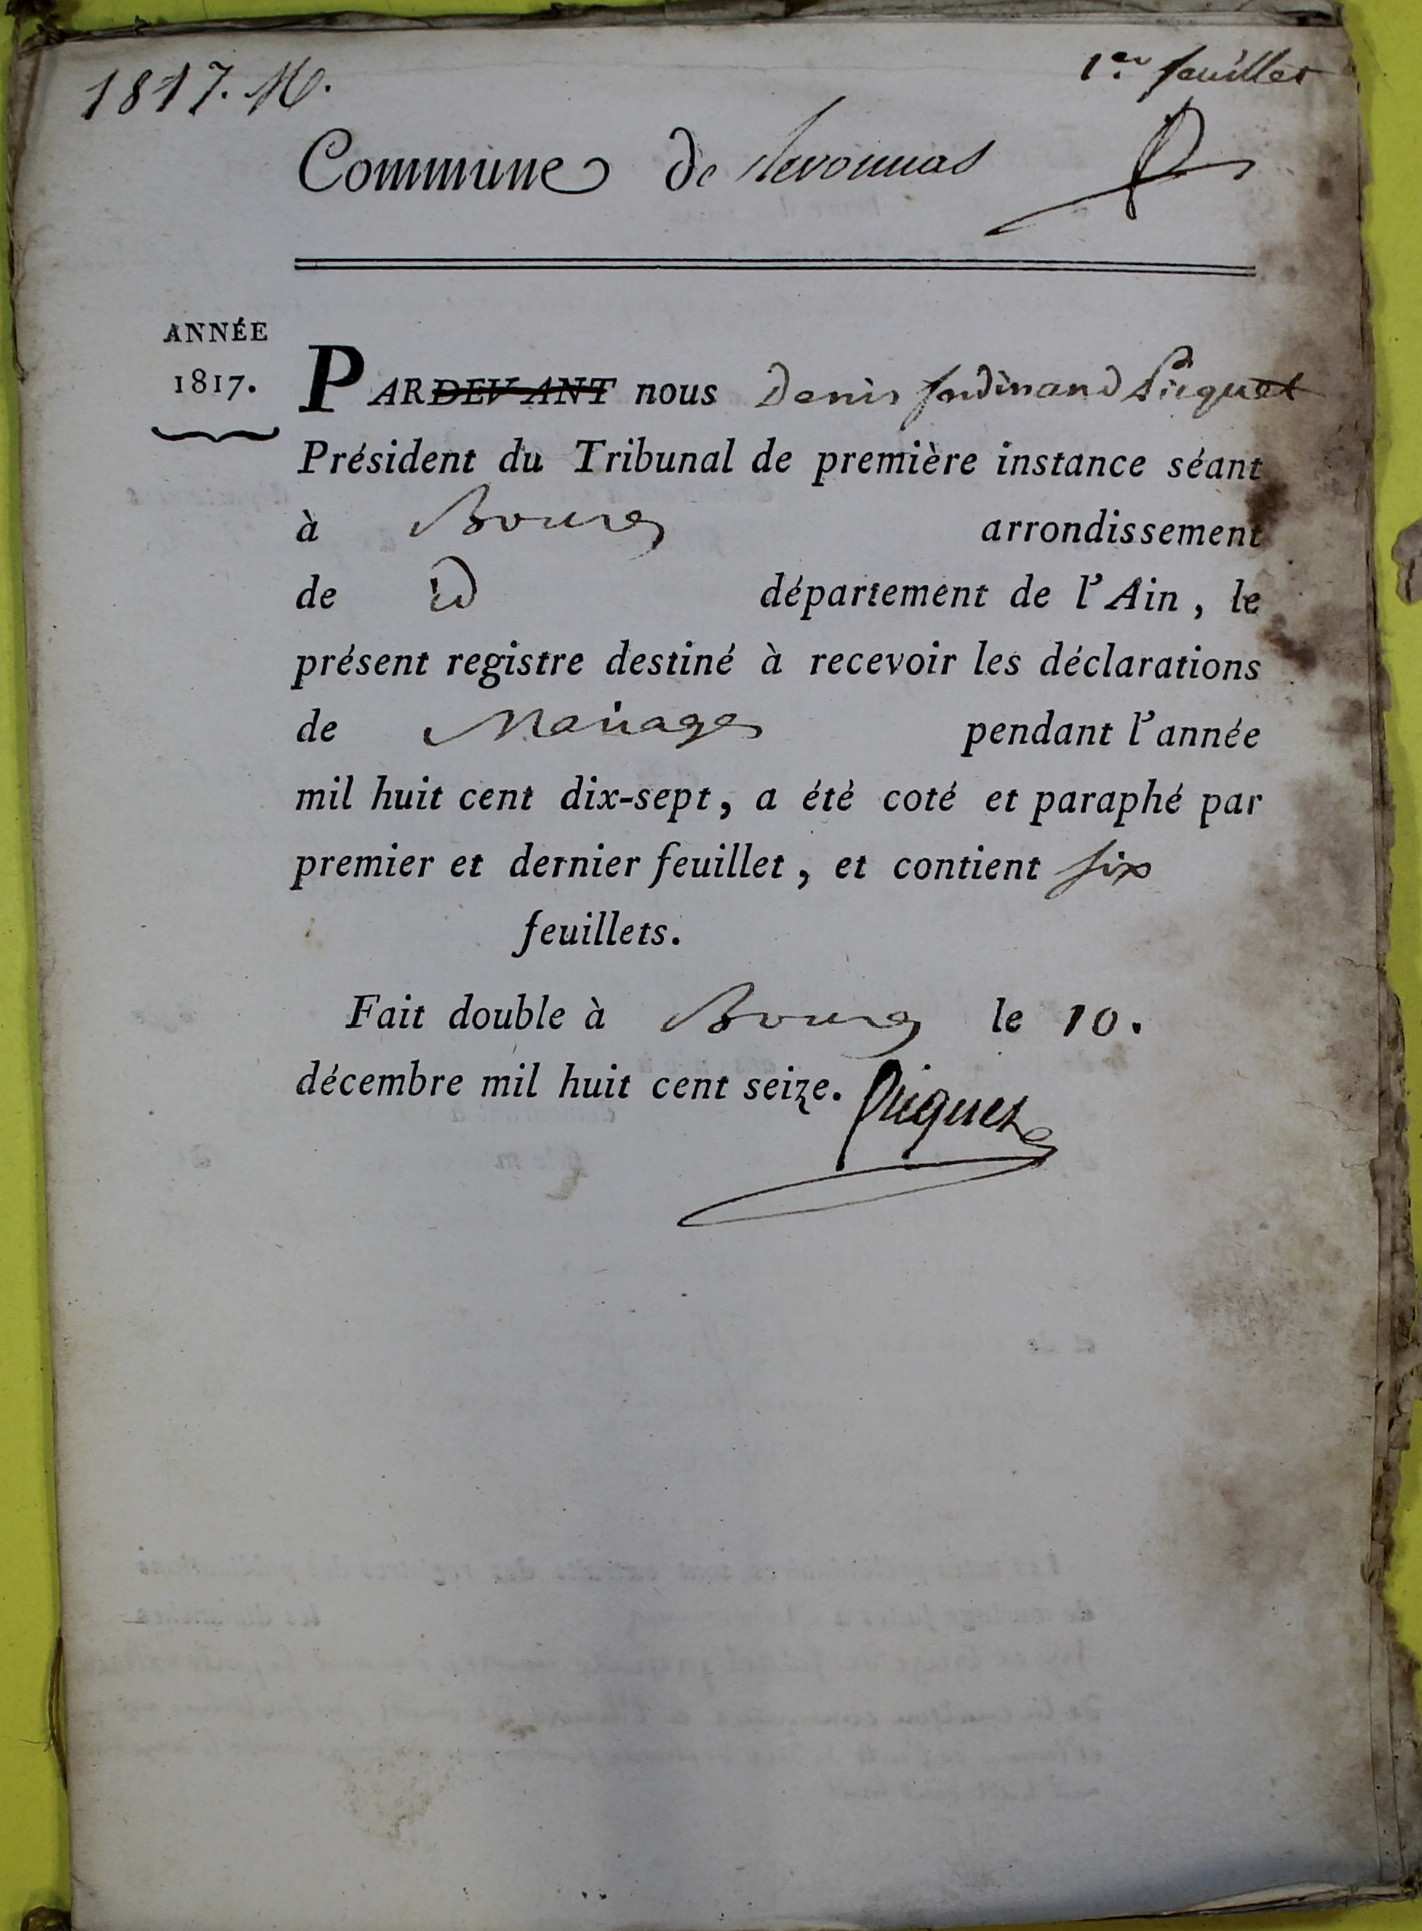 1817. M.
1er feuillet
Commune de Revonnas
ANNÉE
1817.
PARDEVANT nous Denis ferdinand Picquet
Président du Tribunal de première instance séant
à Bourg arrondissement
de id département de l'Ain, le
présent registre destiné à recevoir les déclarations
de Mariages pendant l'année
mil huit cent dix-sept, a été coté et paraphé par
premier et dernier feuillet, et contient six
feuillets.
Fait double à Bourg le 10.
décembre mil huit cent seize. Picquet